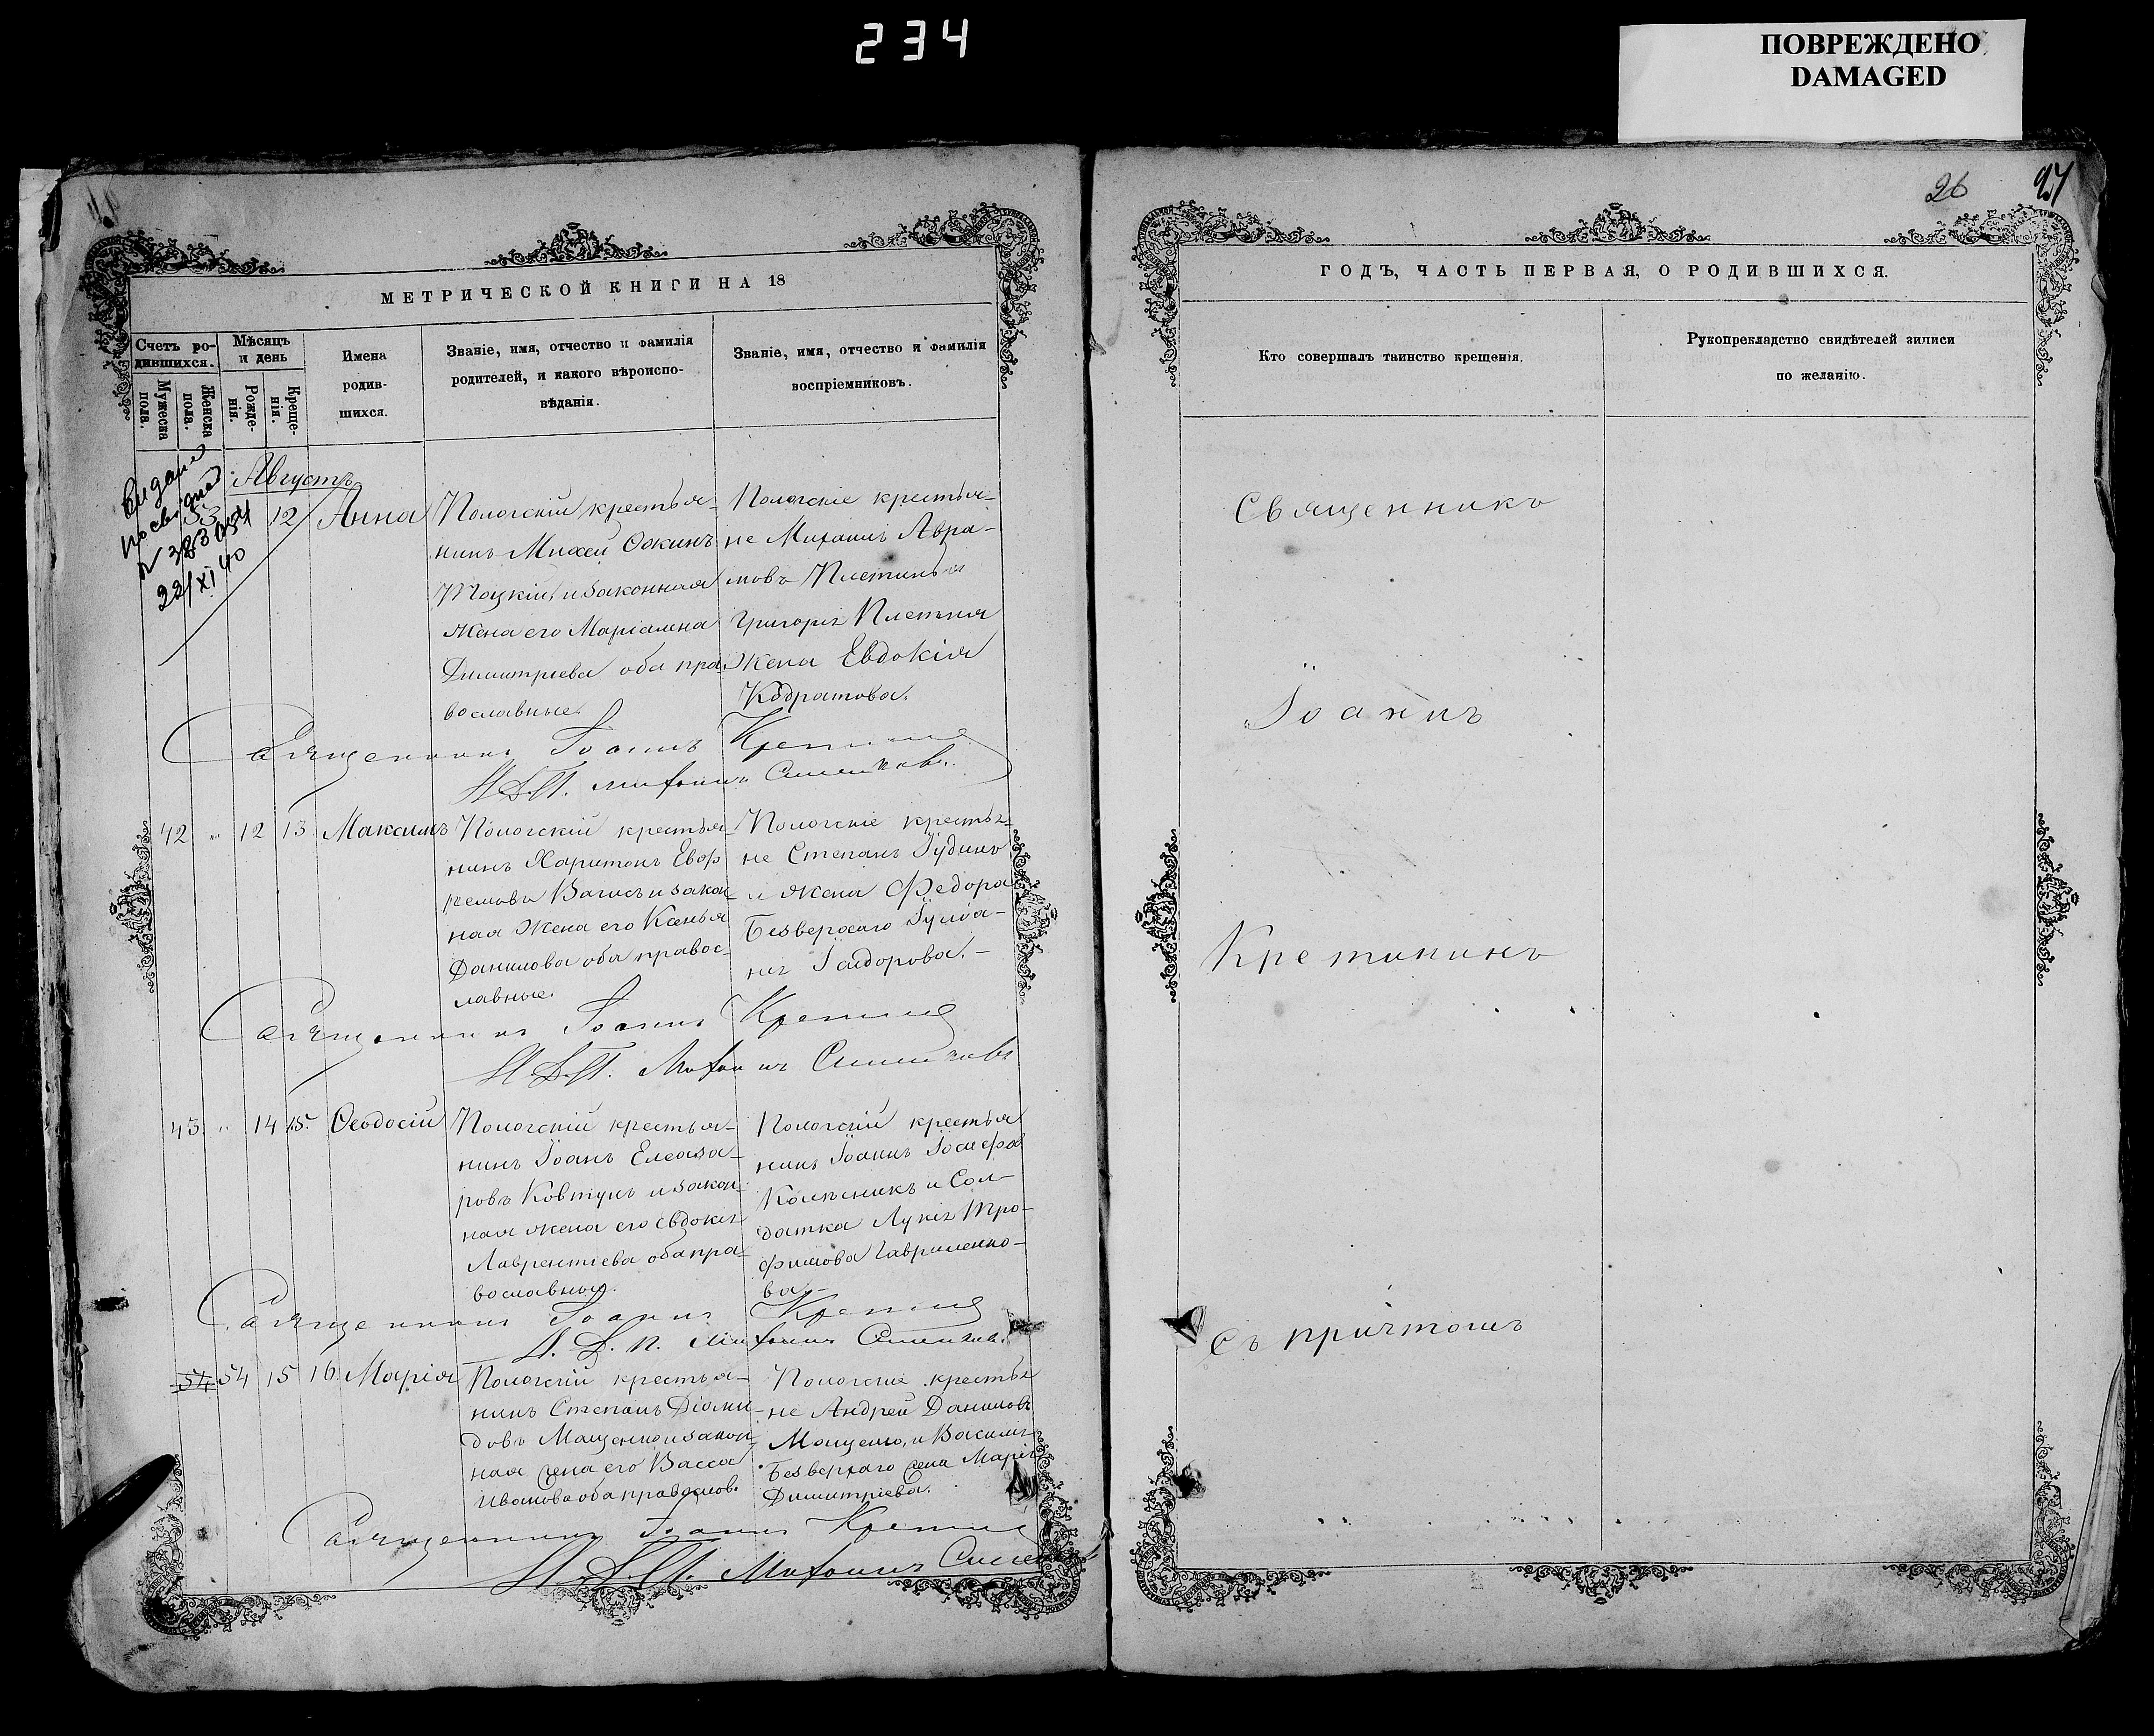 234
ПОВРЕЖДЕНО
DAMAGED
МЕТРИЧЕСКОЙ КНИГИ НА 18
Счетъ ро-
дившихся.
Мужеска
пола.
Женска
пола.
Мѣсяцъ
и день
Рожде-
нія.
Креще-
нія.
Имена
родив-
шихся.
Званіе, имя, отчество и фамилія
родителей, и какого вѣроиспо-
вѣданія.
Званіе, имя, отчество и фамилія
воспріемниковъ.
Августъ
22/XI 40
53 12 Анна
Пологскій крестья-
нинъ Михей
и законная
жена его Маріамна
Димитріева оба пра-
вославные.
Пологскіе крестья-
не Михаилъ Авра-
мовъ
Григорія Плетня
жена Евдокія
Кодратова.
Священникъ Іоаннъ
И.Д.П. Михаилъ
42 " 12 13 Максимъ
Пологскій крестья-
нинъ Харитонъ Евф
ремовъ и закон-
ная жена его Ксенья
Данилова оба правос-
лавные.
Пологскіе крестья-
не Степанъ Іудинъ
и жена Федора
Іулiа-
нія Ісидорова.-
Священникъ Іоаннъ
И.Д.П. Михаилъ
43. " 14 15. Ѳеодосій
Пологскій крестья-
нинъ Іоанъ Елеаза-
ровъ Ковтунъ и закон-
ная жена его Евдокія
Лаврентіева оба пра-
вославные.
Пологскій крестья
нинъ Іоаннъ Іосифа
Колѣсникъ и Сол-
датка Лукія Тро-
фимова Гавриленко-
ва.-
Священникъ Іоаннъ
И.Д.П. Михаилъ
54 54 15 16 Марія
Пологскій крестья-
нинъ Степанъ Діоми-
довъ Мащенко и закон-
ная жена его Васса
Иванова оба правослов.
Пологскіе крестья
не Андрей Даниловъ
Мащенко, и Василія
Безверхаго жена Марія
Димитріева.
Священникъ Іоаннъ
И.Д.П. Михаилъ
26 27
ГОДЪ, ЧАСТЬ ПЕРВАЯ, О РОДИВШИХСЯ.
Кто совершалъ таинство крещенія.
Рукоприкладство свидѣтелей записи
по желанію.
Священникъ
Іоаннъ
Кретининъ
съ причтомъ